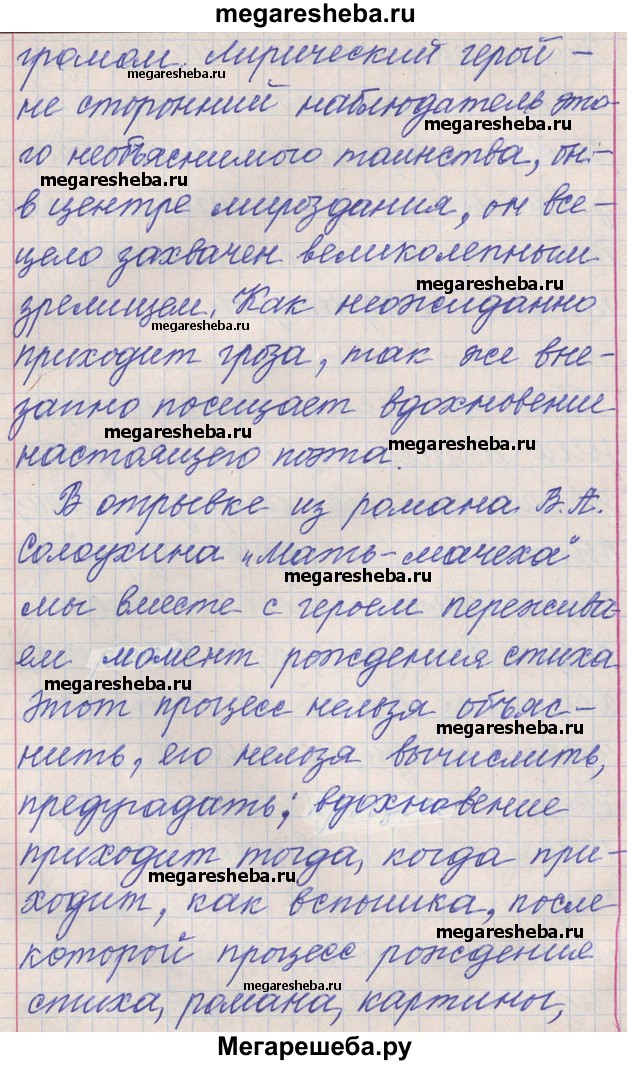 megaresheba.ru
громом. Лирический герой -
megaresheba.ru
не сторонний наблюдатель это-
megaresheba.ru
го необъяснимого таинства, он -
megaresheba.ru
в центре мироздания, он все-
цело захвачен великолепным
megaresheba.ru
зрелищем. Как неожиданно
megaresheba.ru
приходит гроза, так же вне-
запно посещает вдохновение
megaresheba.ru
megaresheba.ru
настоящего поэта.
В отрывке из романа В.А.
Солоухина „Мать-мачеха"
megaresheba.ru
мы вместе с героем пережива
ем момент рождения стиха
megaresheba.ru
Этот процесс нельзя объяс-
megaresheba.ru
нить, его нельзя вычислить,
предугадать; вдохновение
megaresheba.ru
приходит тогда, когда при-
megaresheba.ru
ходит, как вспышка, после
megaresheba.ru
которой процесс рождения
megaresheba.ru
стиха, романа, картины,
Мегарешеба.ру